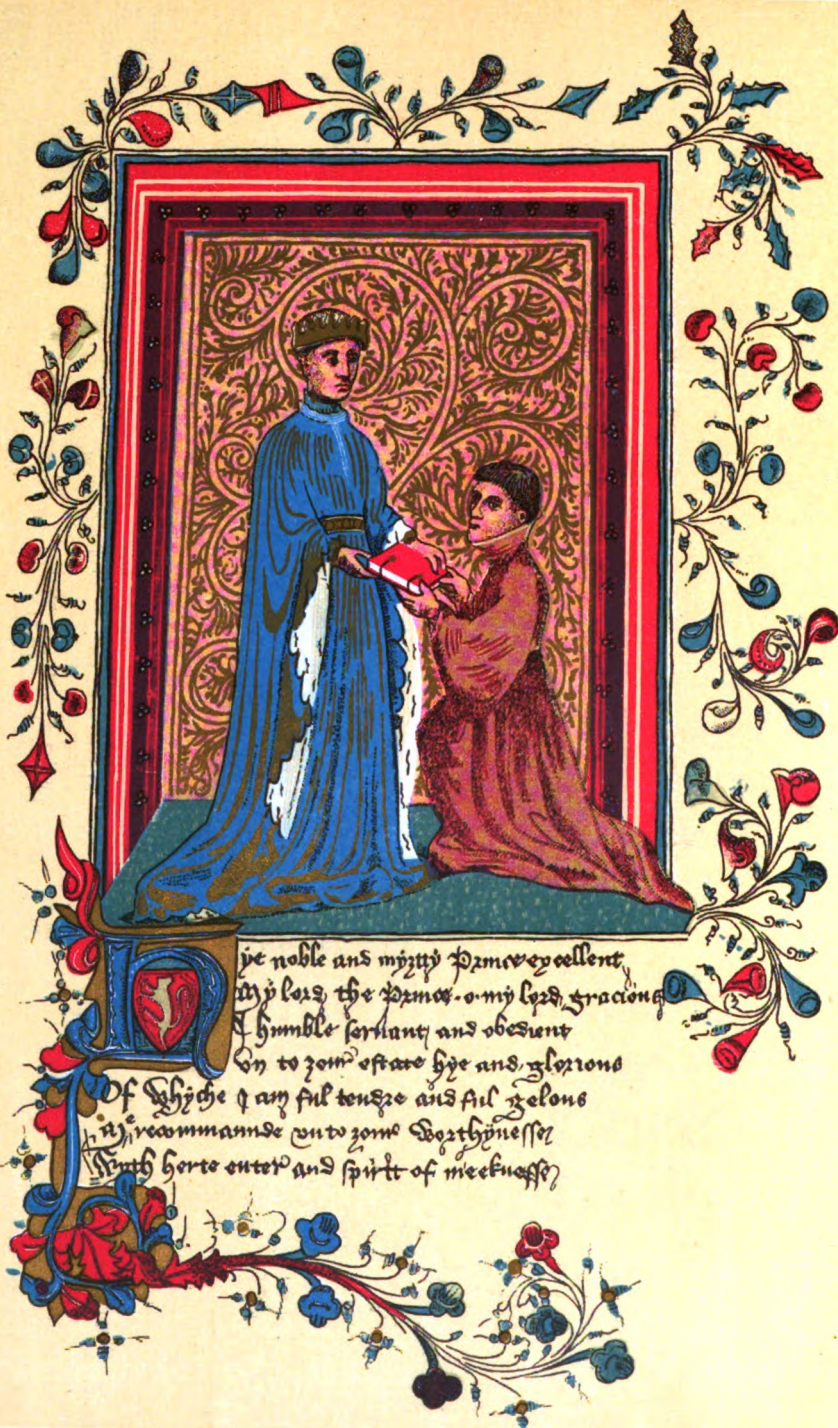 Hye noble and myȝtty Prince excellent
My lord the Prince · o · my lord gracious
I humble servant and obedient
Vn to ȝour estate hye and glorious
Of Whyche I am ful tendre and ful gelous
Me recommaunde vnto ȝour Worthynesse
Wyth herte enter and spirit of meeknesse